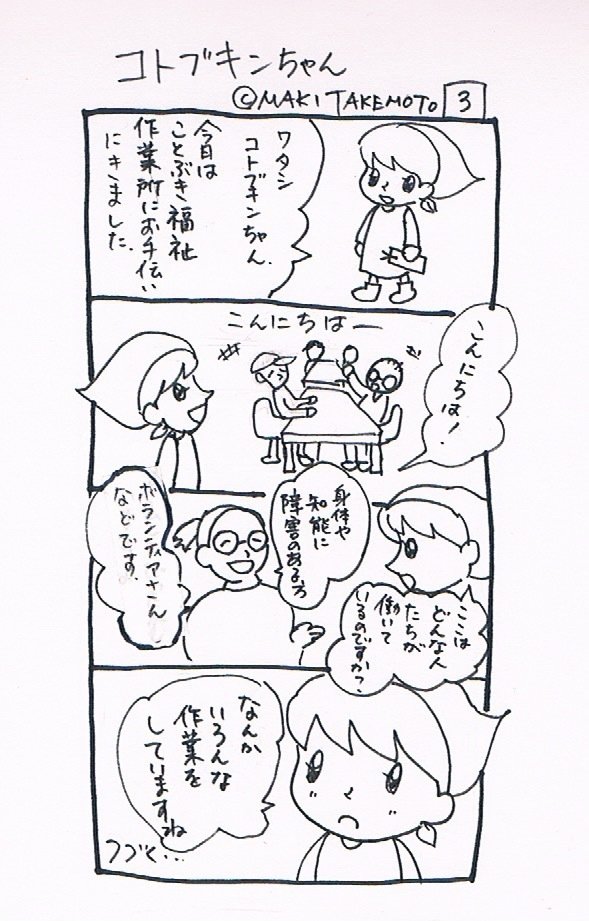 コトブキンちゃん
©MAKI TAKEMOTO 3
ワタシ
コトブキンちゃん.
今日は
ことぶき福祉
作業所にお手伝い
にきました.
こんにちはー
こんにちは!
ここは
どんな人
たちが
働いて
いるのですか?
身体や
知能に
障害のある方
ボランティアさん
などです.
なんか
いろんな
作業を
していますね
つづく...